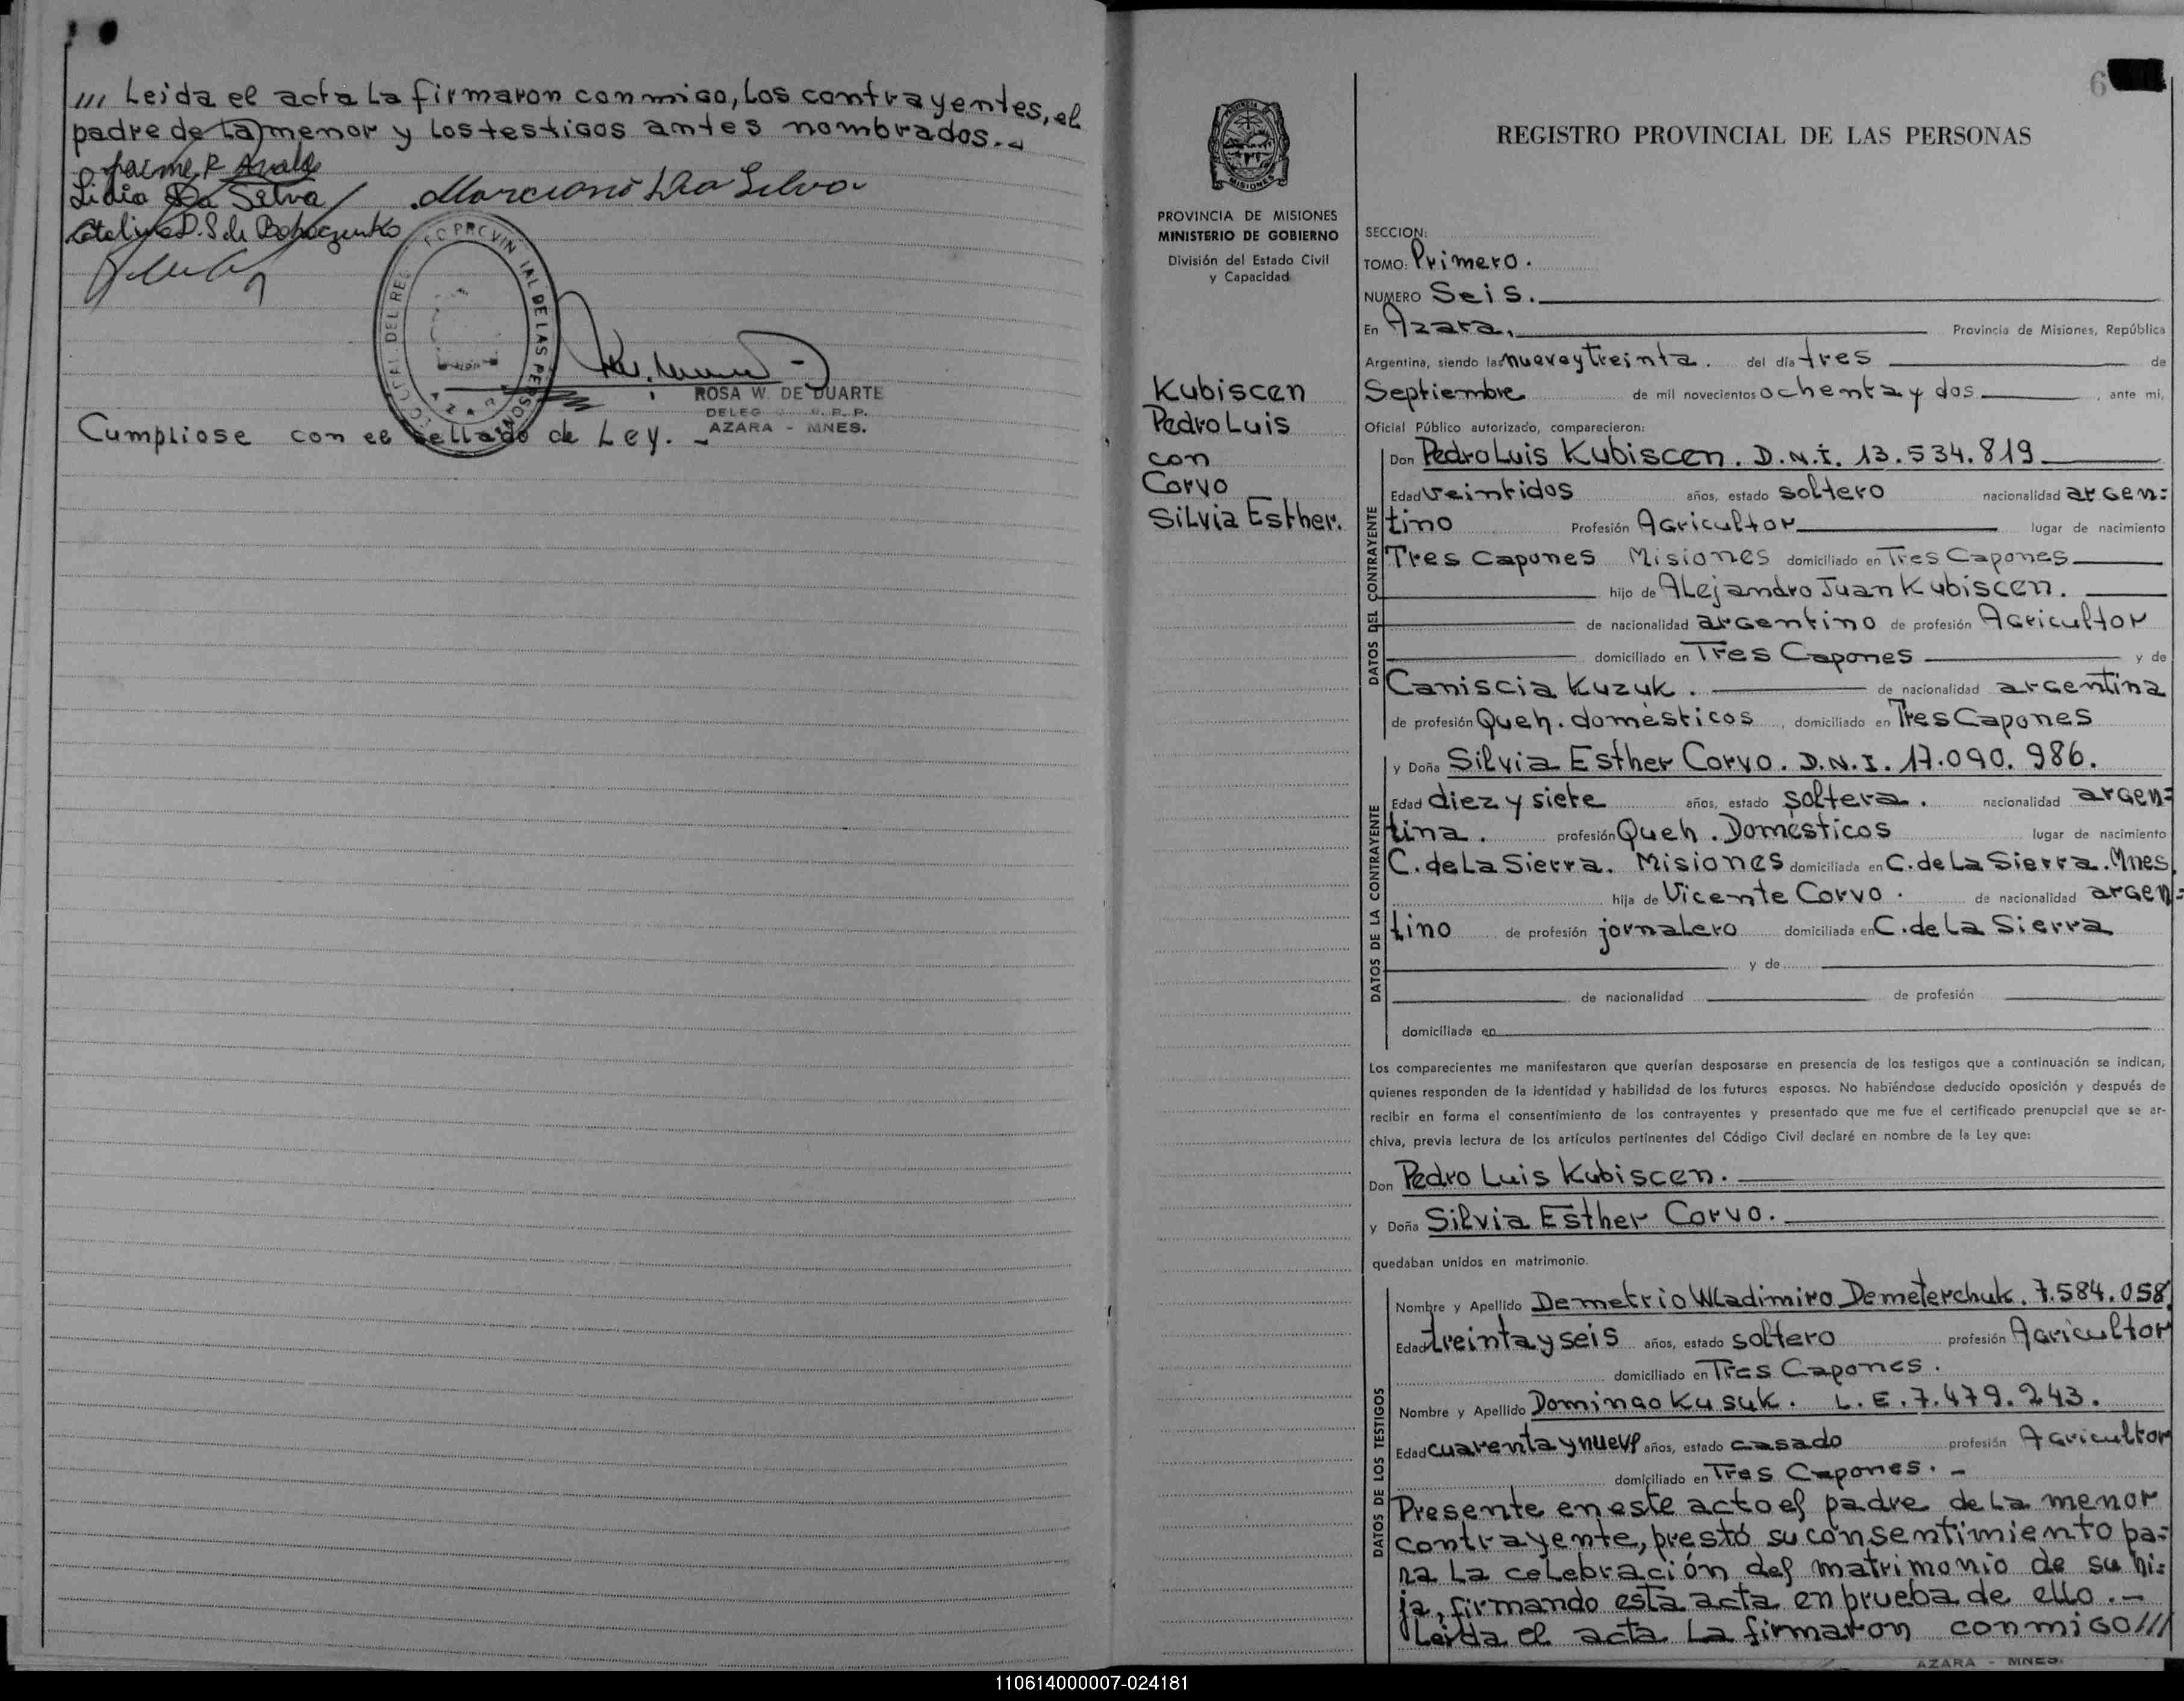 /// Leida el acta la firmaron conmigo, los contrayentes, el
padre de la menor y los testigos antes nombrados.-
Lidia Da Silva
Marciano Da Silva
ROSA W. DE DUARTE
AZARA - MNES.
Cumpliose con el sellado de Ley. -
6
PROVINCIA DE MISIONES
MINISTERIO DE GOBIERNO
División del Estado Civil
y Capacidad
Kubiscen
Pedro Luis
con
Corvo
Silvia Esther.
REGISTRO PROVINCIAL DE LAS PERSONAS
SECCION:
TOMO: Primero.
NUMERO Seis.
En Azara, Provincia de Misiones, República
Argentina, siendo las nueve y treinta. del día tres de
Septiembre de mil novecientos ochenta y dos, ante mi,
Oficial Público autorizado, comparecieron:
DATOS DEL CONTRAYENTE
Don Pedro Luis Kubiscen. D.N.I. 13.534.819
Edad veintidos años, estado soltero nacionalidad argen=
tino Profesión Agricultor lugar de nacimiento
Tres Capones Misiones domiciliado en Tres Capones
hijo de Alejandro Juan Kubiscen.
de nacionalidad argentino de profesión Agricultor
domiciliado en Tres Capones y de
Caniscia Kuzuk. de nacionalidad argentina
de profesión Queh. domésticos, domiciliado en Tres Capones
DATOS DE LA CONTRAYENTE
y Doña Silvia Esther Corvo. D.N.I. 17.090.986.
Edad diez y siete años, estado soltera. nacionalidad argen=
tina. profesión Queh. Domésticos lugar de nacimiento
C. de La Sierra. Misiones domiciliada en C. de La Sierra. Mnes.
hija de Vicente Corvo. de nacionalidad argen=
tino de profesión jornalero domiciliada en C. de La Sierra
y de
de nacionalidad de profesión
domiciliada en
Los comparecientes me manifestaron que querían desposarse en presencia de los testigos que a continuación se indican,
quienes responden de la identidad y habilidad de los futuros esposos. No habiéndose deducido oposición y después de
recibir en forma el consentimiento de los contrayentes y presentado que me fue el certificado prenupcial que se ar-
chiva, previa lectura de los artículos pertinentes del Código Civil declaré en nombre de la Ley que:
Don Pedro Luis Kubiscen.
y Doña Silvia Esther Corvo.
quedaban unidos en matrimonio.
DATOS DE LOS TESTIGOS
Nombre y Apellido Demetrio Wladimiro Demeterchuk. 7.584.058.
Edad treinta y seis años, estado soltero profesión Agricultor
domiciliado en Tres Capones.
Nombre y Apellido Domingo Kusuk. L.E. 7.479.243.
Edad cuarenta y nueve años, estado casado profesión Agricultor
domiciliado en Tres Capones. -
Presente en este acto el padre de la menor
contrayente, prestó su consentimiento pa=
ra la celebración del matrimonio de su hi=
ja, firmando esta acta en prueba de ello.-
Leida el acta la firmaron conmigo///
AZARA - MNES.
110614000007-024181